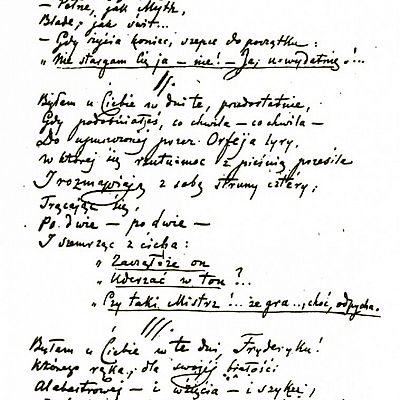 — Pełne, jak Myth,
Blade, jak świt...
— Gdy życia koniec, szepce do początku:
"Nie stargam Cię ja — nie! — Ja, uwydatnię!...
II.
Byłem u Ciebie w dni te, przedostatnie,
Gdy podobniałeś, co chwila — co chwila —
Do upuszczonej przez Orfeja lyry,
W której się rzutu-moc z pieśnią przesila
I rozmawiają z sobą struny cztéry;
Trącając się,
Po dwie — po dwie —
I szemrząc z cicha:
"Zacząłże on
"Uderzać w ton?...
"Czy taki Mistrz!... że gra.., choć, odpycha.
III.
Byłem u Ciebie w te dni, Fryderyku!
Którego ręka, dla swojéj białości
Alabastrowej — i wzięcia — i szyku,